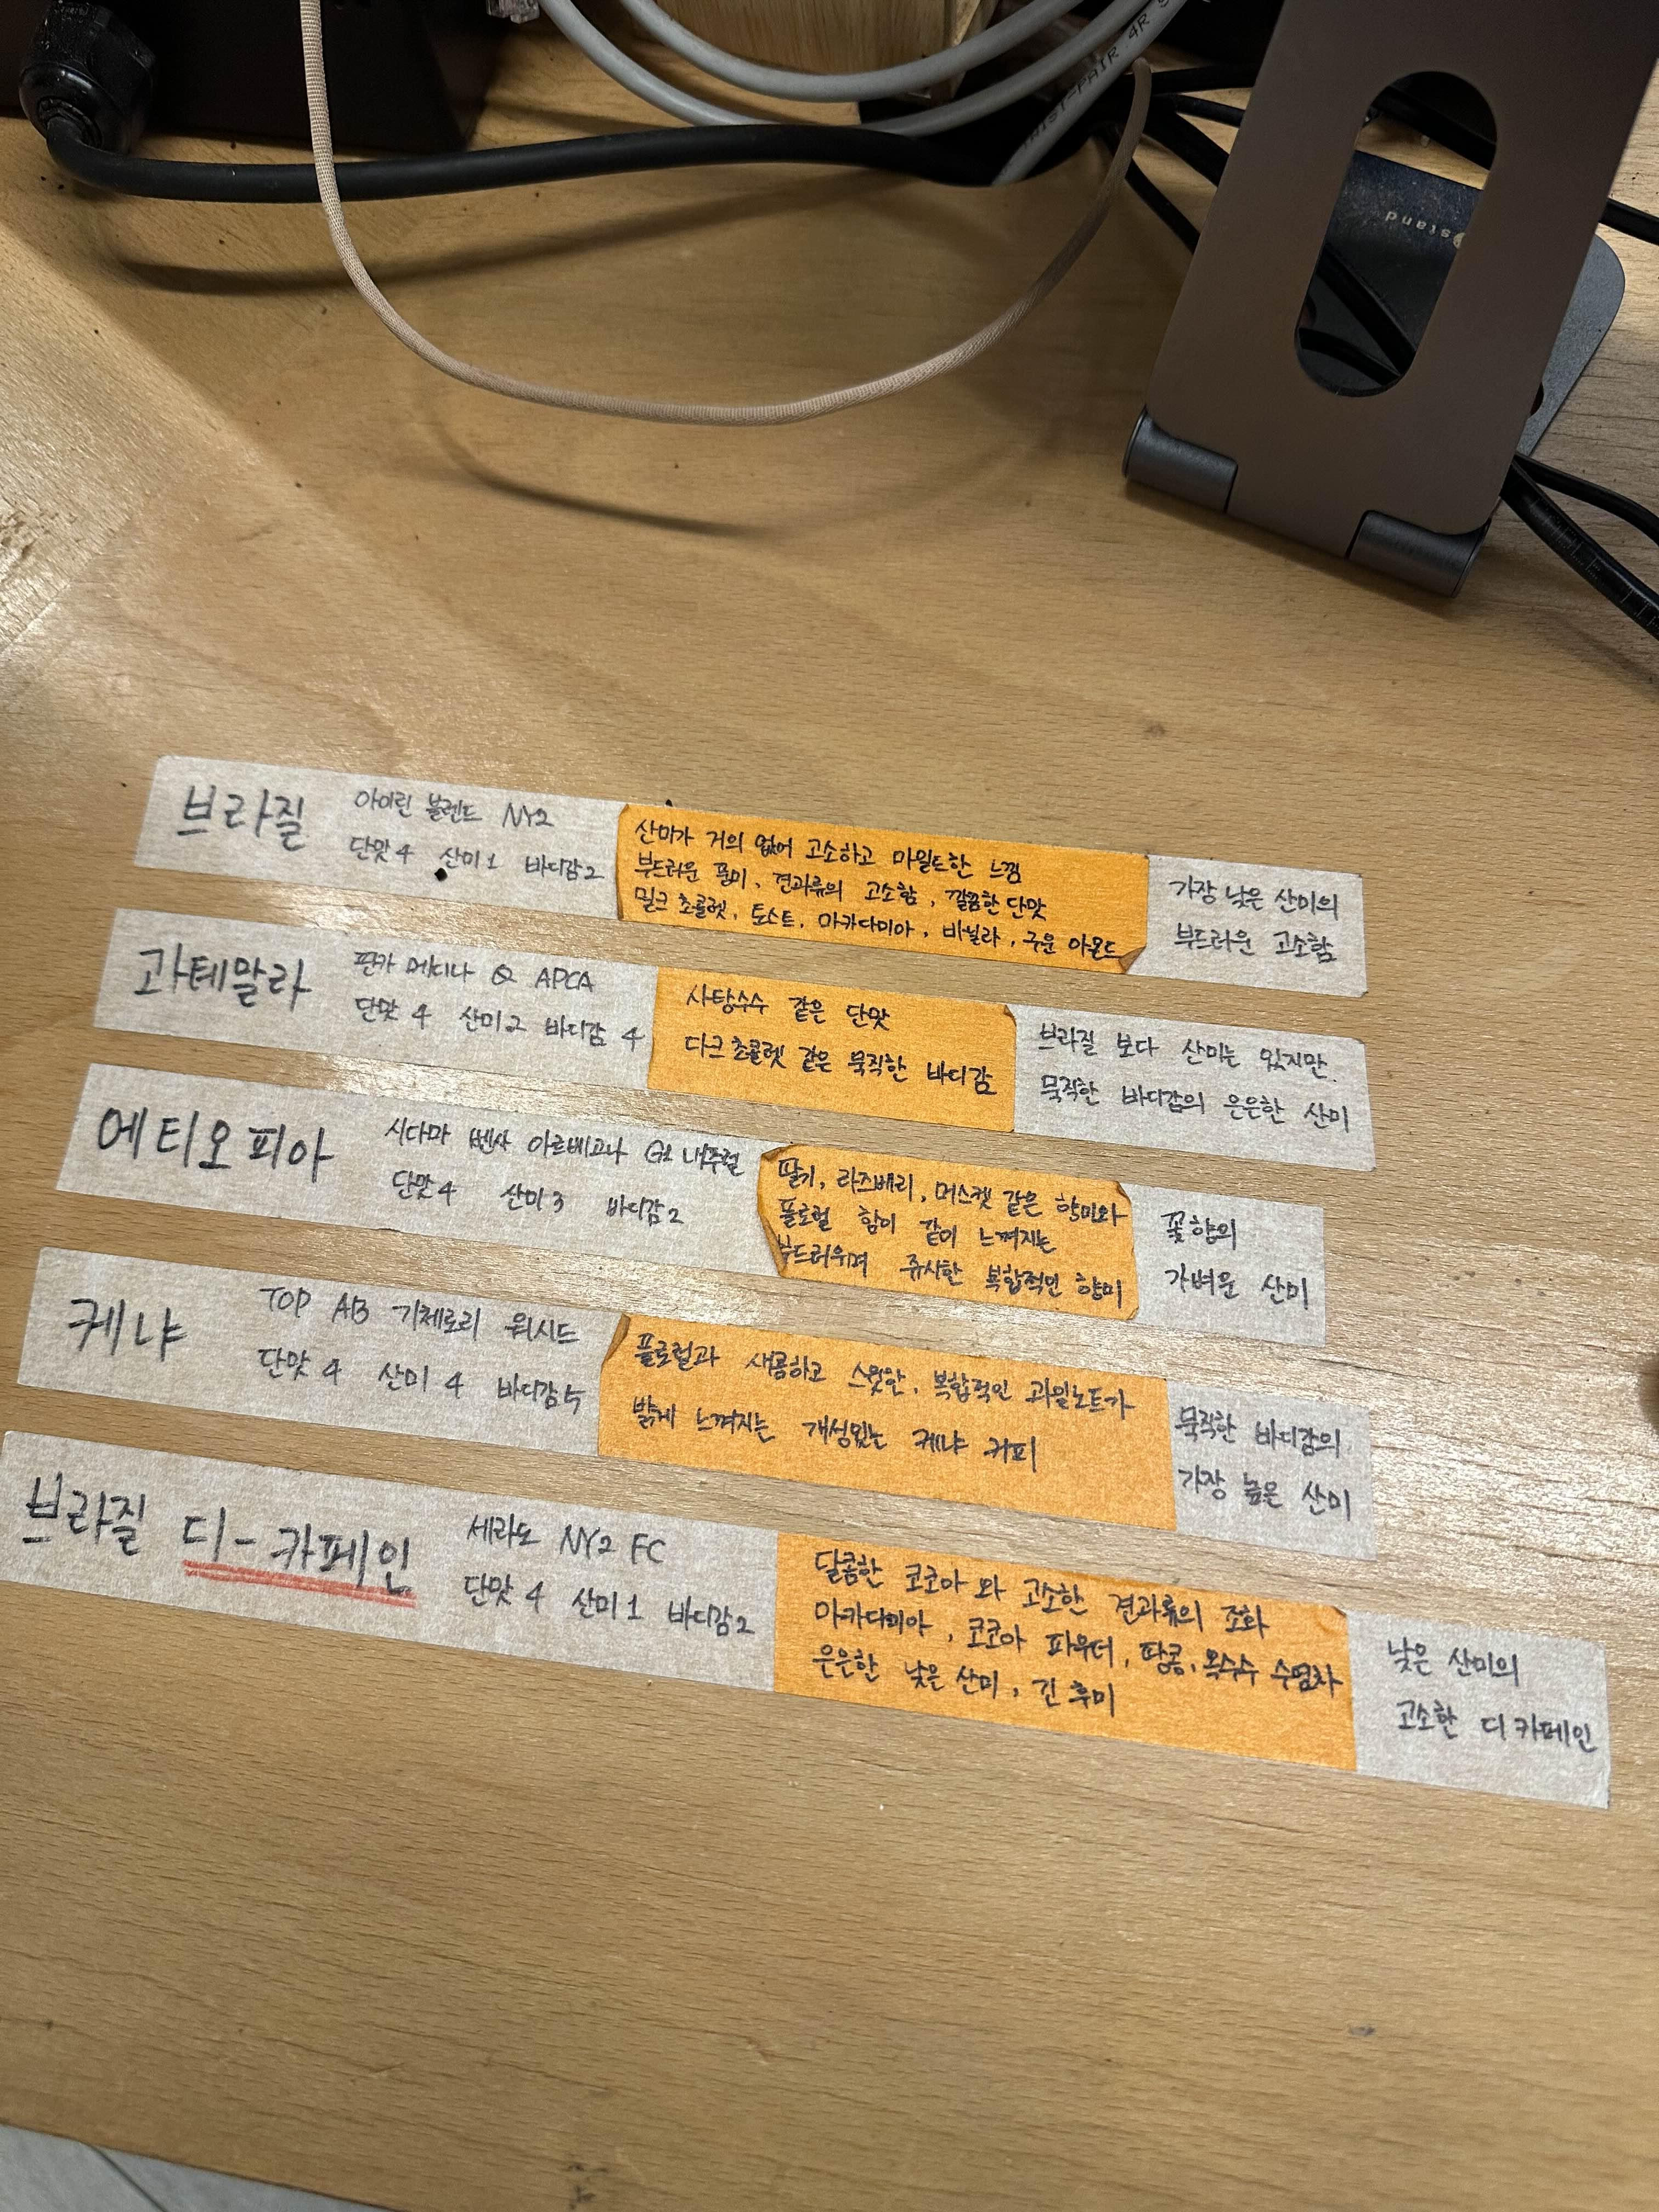 PAIR 4R
stand
브라질
아이린 블렌드 NY2
단맛 4 산미 1 바디감 2
산미가 거의 없어 고소하고 마일드한 느낌
부드러운 풍미, 견과류의 고소함, 깔끔한 단맛
밀크 초콜렛, 토스트, 마카다미아, 바닐라, 구운 아몬드
가장 낮은 산미의
부드러운 고소함
과테말라
핀카 메디나 Q APCA
단맛 4 산미 2 바디감 4
사탕수수 같은 단맛
다크초콜렛 같은 묵직한 바디감
브라질 보다 산미는 있지만
묵직한 바디감의 은은한 산미
에티오피아
시다마 벤사 아르베고나 G1 내추럴
단맛 4 산미 3 바디감 2
딸기, 라즈베리, 머스켓 같은 향미와
플로럴 함이 같이 느껴지는
부드러우며 쥬시한 복합적인 향미
꽃향의
가벼운 산미
케냐
TOP AB 기체로리 워시드
단맛 4 산미 4 바디감 5
플로럴과 새콤하고 스윗한, 복합적인 과일노트가
밝게 느껴지는 개성있는 케냐 커피
묵직한 바디감의
가장 높은 산미
브라질 디-카페인
세라도 NY2 FC
단맛 4 산미 1 바디감 2
달콤한 코코아 와 고소한 견과류의 조화
마카다미아, 코코아 파우더, 땅콩, 옥수수 수염차
은은한 낮은 산미, 긴 후미
낮은 산미의
고소한 디카페인